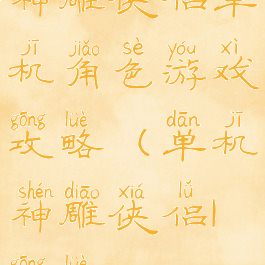 神雕侠侣单
jī jiǎo sè yóu xì
机角色游戏
gōng lüè dān jī
攻略（单机
shén diāo xiá lǚ
神雕侠侣|
gōng lüè